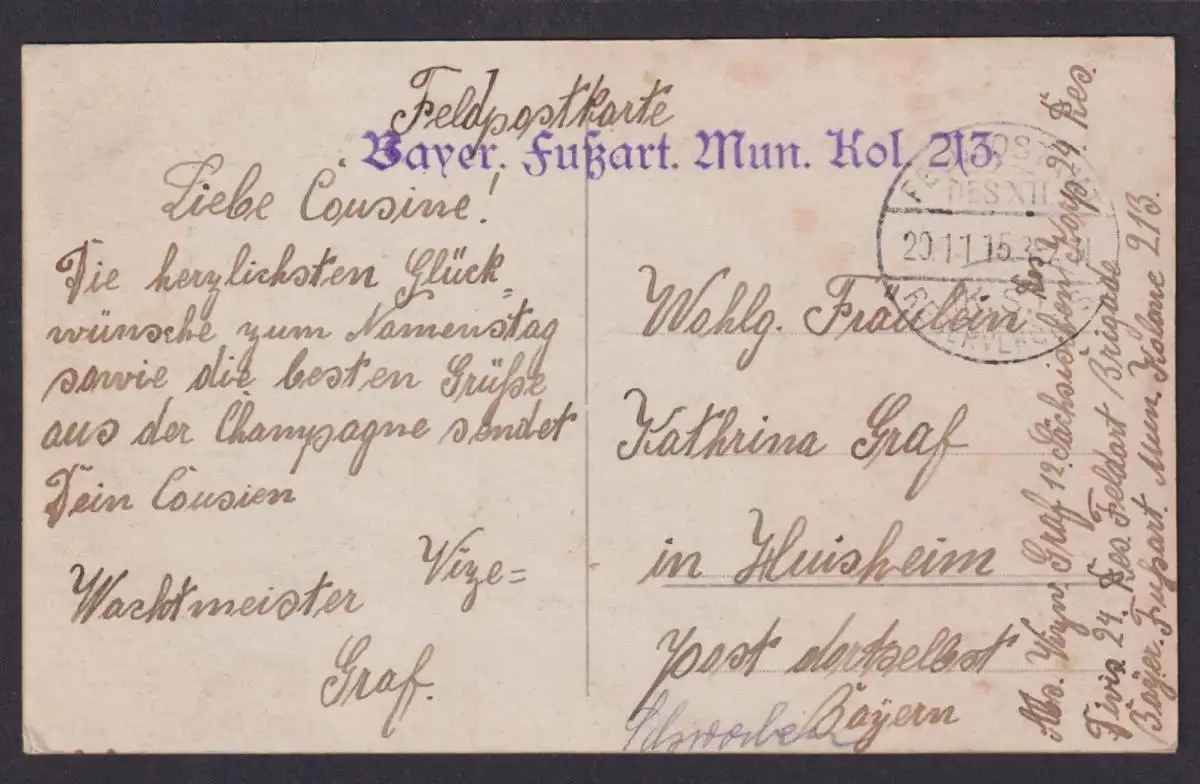 Feldpostkarte
Bayer. Fußart. Mun. Kol. 213.
Liebe Cousine!
Die herzlichsten Glück=
wünsche zum Namenstag
sowie die besten Grüße
aus der Champagne sendet
Dein Cousien
Vize=
Wachtmeister
Graf.
DES XII
20.11.15.
RESERVEKORPS
Wohlg. Fräulein
Kathrina Graf
in Huisheim
post dortselbst
Bayern
Schwaben
Abs. Wzw. Graf 12. Sächsischent Res. Korp 24. Res.
Divis. 24. Res. Feldart Brigade
Bayer. Fußart. Mun. Kolone 213.